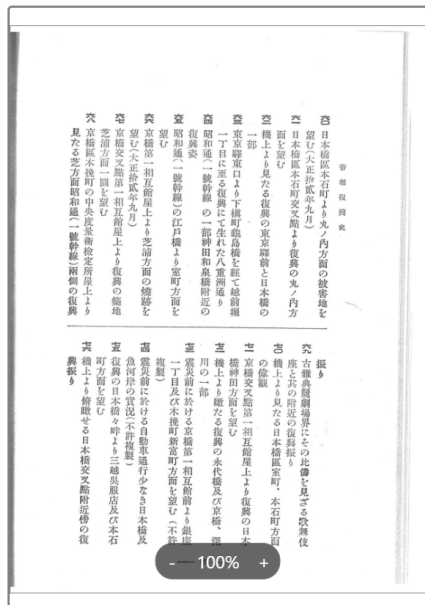 帝都復興史
六〇 日本橋區本石町より丸ノ内方面の被害地を
望む(大正拾貳年九月)
六一 日本橋區本石町交叉點より復興の丸ノ内方
面を望む
六二 機上より見たる復興の東京驛前と日本橋の
一部
六三 東京驛東口より下槇町龜島橋を經て越前堀
一丁目に至る復興にて生れた八重洲通り
六四 昭和通(一號幹線)の一部神田和泉橋附近の
復興姿
六五 昭和通(一號幹線)の江戸橋より室町方面を
望む
六六 京橋第一相互館屋上より芝浦方面の燒跡を
望む(大正拾貳年九月)
六七 京橋交叉點第一相互館屋上より復興の築地
芝浦方面一圓を望む
六八 京橋區木挽町の中央度量衡檢定所屋上より
見たる芝方面昭和通(一號幹線)兩側の復興
振り
六九 古雅典麗劇場界にその比儔を見ざる歌舞伎
座と其の附近の復興振り
七〇 機上より見たる日本橋區室町、本石町方面
の偉觀
七一 京橋交叉點第一相互館屋上より復興の日本
橋神田方面を望む
七二 機上より瞰たる復興の永代橋及び京橋、深
川の一部
七三 震災前に於ける京橋第一相互館前より銀座
一丁目及び木挽町新富町方面を望む(不許
複製)
七四 震災前に於ける自動車通行少なき日本橋及
魚河岸の實況(不許複製)
七五 復興の日本橋々畔より三越呉服店及び本石
町方面を望む
七六 機上より俯瞰せる日本橋交叉點附近傍の復
興振り
- 100% +